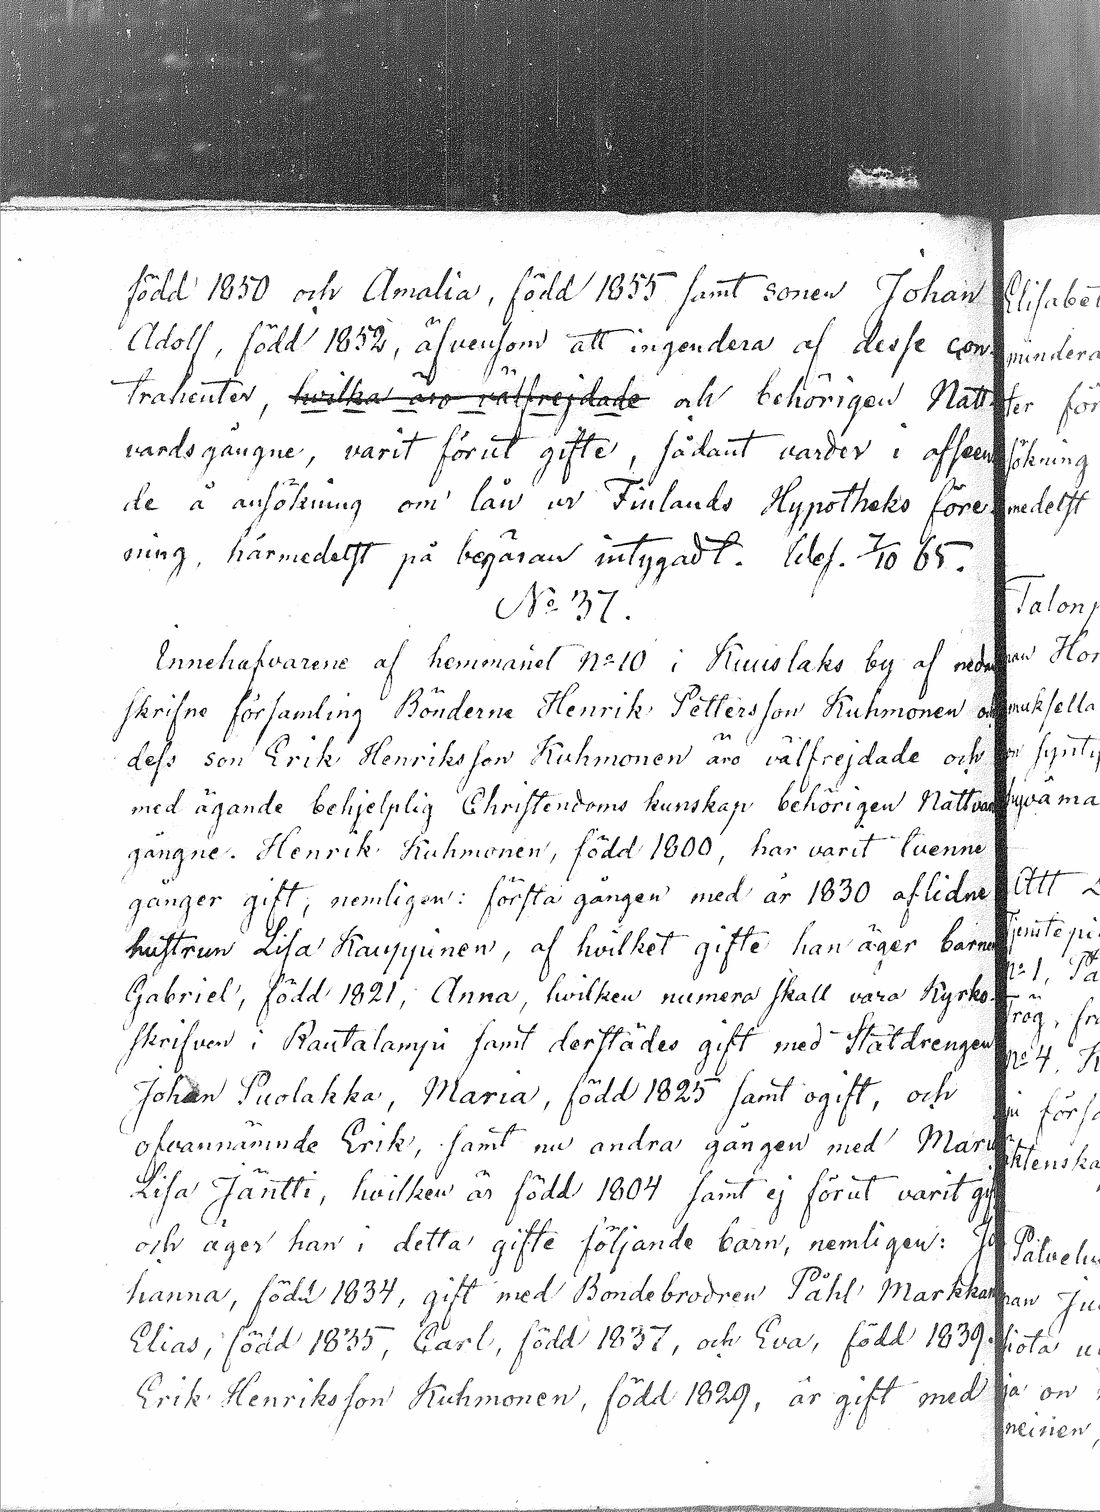 född 1850 och Amalia, född 1855 samt sonen Johan
Adolf, född 1852, äfvensom att ingendera af desse con-
trahenter, hvilka äro välfrejdade och behörigen Natt-
vardsgångne, varit förut gifte, sådant varder i afseen-
de å ansökning om lån ur Finlands Hypotheks före-
ning, härmedelst på begäran intygadt. Idef. 7/10 65.
No 37.
Innehafvarene af hemmanet No 10 i Kuuslaks by af nedan
skrifne församling Bönderne Henrik Pettersson Kuhmonen och
dess son Erik Henriksson Kuhmonen äro välfrejdade och
med ägande behjelplig Christendoms kunskap behörigen Nattvard
gångne. Henrik Kuhmonen, född 1800, har varit tvenne
gånger gift, nemligen: första gången med år 1830 aflidne
hustrun Lisa Kauppinen, af hvilket gifte han äger barnen
Gabriel, född 1821, Anna, hvilken numera skall vara Kyrko-
skrifven i Rautalampi samt derstädes gift med Statdrengen
Johan Puolakka, Maria, född 1825 samt ogift, och
ofvannämnde Erik, samt nu andra gången med Maria
Lisa Jäntti, hvilken är född 1804 samt ej förut varit gift
och äger han i detta gifte följande barn, nemligen: Jo
hanna, född 1834, gift med Bondebrodren Påhl Markkan
Elias, född 1835, Carl, född 1837, och Eva, född 1839.
Erik Henriksson Kuhmonen, född 1829, är gift med
Elisabet
mindera
ter för
sökning
medelst
Talon
nan Hon
muksella
on synty
hyvä ma
Att
No 1, Pa
Trög, fra
No 4. K
i förs
äktenska
Palvelu
nan Ju
hiota
ja on
neinen,